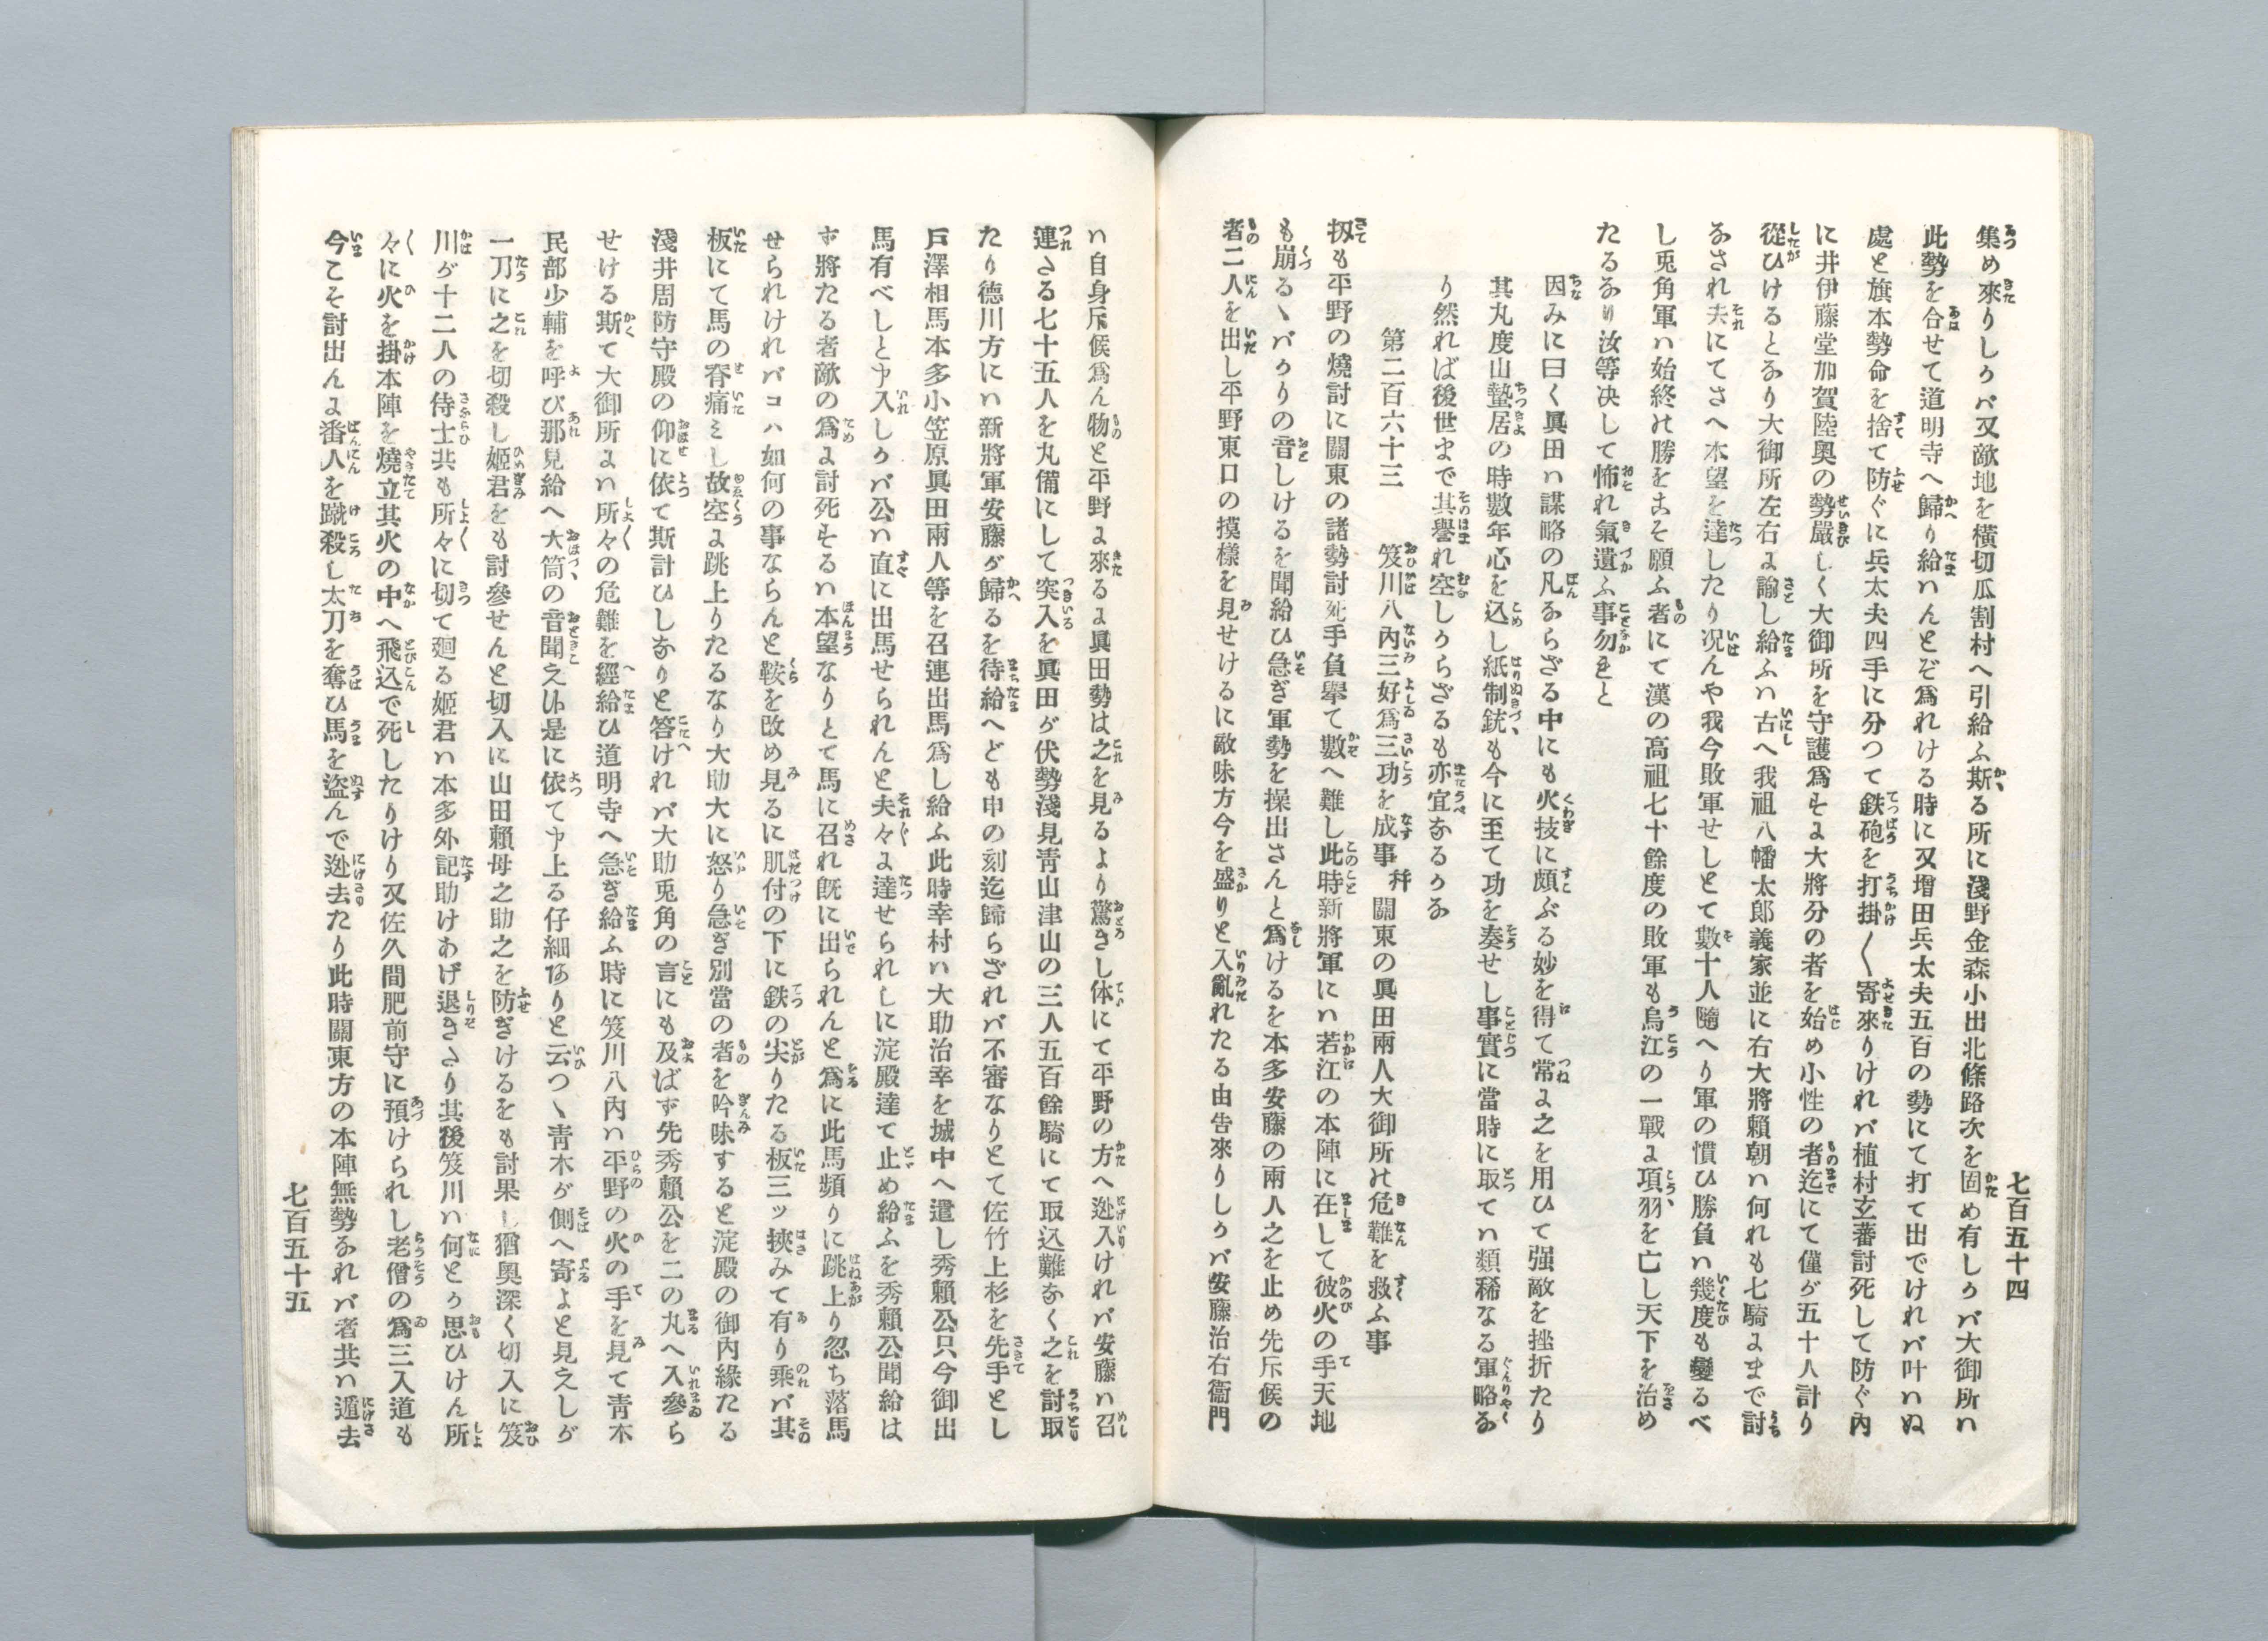 七百五十四
集め來りしかバ又敵地を横切瓜割村へ引給ふ斯る所に淺野金森小出北條路次を固め有しかバ大御所ハ
此勢を合せて道明寺へ歸り給ハんとぞ爲れける時に又增田兵太夫五百の勢にて打て出でけれバ叶ハぬ
處と旗本勢命を捨て防ぐに兵太夫四手に分つて鉄砲を打掛〱寄來りけれバ植村玄蕃討死して防ぐ內
に井伊藤堂加賀陸奥の勢嚴しく大御所を守護爲もよ大將分の者を始め小性の者迄にて僅が五十人計り
從ひけるとなり大御所左右よ諭し給ふハ古へ我祖八幡太郎義家並に右大將賴朝ハ何れも七騎よまで討
なされ夫にてさへ本望を達したり况んや我今敗軍せしとて數十人隨へり軍の慣ひ勝負ハ幾度も變るべ
し兎角軍ハ始終の勝をこそ願ふ者にて漢の高祖七十餘度の敗軍も烏江の一戰よ項羽を亡し天下を治め
たるなり汝等决して怖れ氣遣ふ事勿きと
因みに曰く眞田ハ謀略の凡ならざる中にも火技に頗ぶる妙を得て常よ之を用ひて强敵を挫折たり
其丸度山蟄居の時數年心を込し紙制銃も今に至て功を奏せし事實に當時に取てハ類稀なる軍略な
り然れば後世まで其譽れ空しからざるも亦宜なるかな
第二百六十三　笈川八內三好爲三功を成事　幷　關東の眞田兩人大御所の危難を救ふ事
扨も平野の燒討に關東の諸勢討死手負擧て數へ難し此時新將軍にハ若江の本陣に在して彼火の手天地
も崩るヽバかりの音しけるを聞給ひ急ぎ軍勢を操出さんと爲けるを本多安藤の兩人之を止め先斥候の
者二人を出し平野東口の摸樣を見せけるに敵味方今を盛りと入亂れたる由告來りしかバ安藤治右衞門
ハ自身斥候爲ん物と平野よ來るよ眞田勢は之を見るより驚きし体にて平野の方へ迯入けれバ安藤ハ召
連さる七十五人を丸備にして突入を眞田が伏勢淺見靑山津山の三人五百餘騎にて取込難なく之を討取
たり德川方にハ新將軍安藤が歸るを待給へども申の刻迄歸らざれバ不審なりとて佐竹上杉を先手とし
戶澤相馬本多小笠原眞田兩人等を召連出馬爲し給ふ此時幸村ハ大助治幸を城中へ遣し秀賴公只今御出
馬有べしと申入しかバ公ハ直に出馬せられんと夫々よ達せられしに淀殿達て止め給ふを秀賴公聞給は
ず將たる者敵の爲よ討死もるハ本望なりとて馬に召れ旣に出られんと爲に此馬頻りに跳上り忽ち落馬
せられけれバコハ如何の事ならんと鞍を改め見るに肌付の下に鉄の尖りたる板三ッ挾みて有り乘バ其
板にて馬の脊痛ミし故空よ跳上りたるなり大助大に怒り急ぎ別當の者を吟味すると淀殿の御內緣たる
淺井周防守殿の仰に依て斯計ひしなりと答けれバ大助兎角の言にも及ばず先秀賴公を二の丸へ入參ら
せける斯て大御所よハ所々の危難を經給ひ道明寺へ急ぎ給ふ時に笈川八內ハ平野の火の手を見て靑木
民部少輔を呼び那見給へ大筒の音聞え是に依て申上る仔細ありと云つヽ靑木が側へ寄よと見えしが
一刀に之を切殺し姬君をも討參せんと切入に山田賴母之助之を防ぎけるをも討果し猶奥深く切入に笈
川が十二人の侍士共も所々に切て廻る姬君ハ本多外記助けあげ退きさり其後笈川ハ何とか思ひけん所
々に火を掛本陣を燒立其火の中へ飛込で死したりけり又佐久間肥前守に預けられし老僧の爲三入道も
今こそ討出んよ番人を蹴殺し太刀を奪ひ馬を盜んで迯去たり此時關東方の本陣無勢なれバ者共ハ遁去
七百五十五